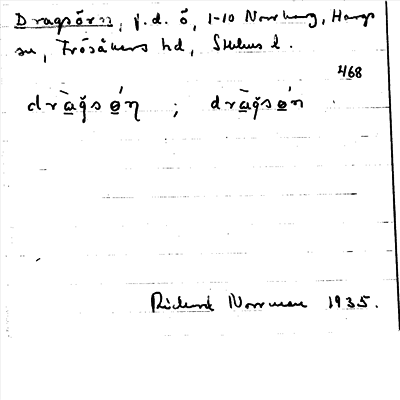 Dragsörn, p.d. ö, 1-10 Norrhang, Hargs
sn, Frösåkers hd, Sthlms l.
468
dràg̊sǿn ; dràg̊sǿn
Richard Norrman 1935.